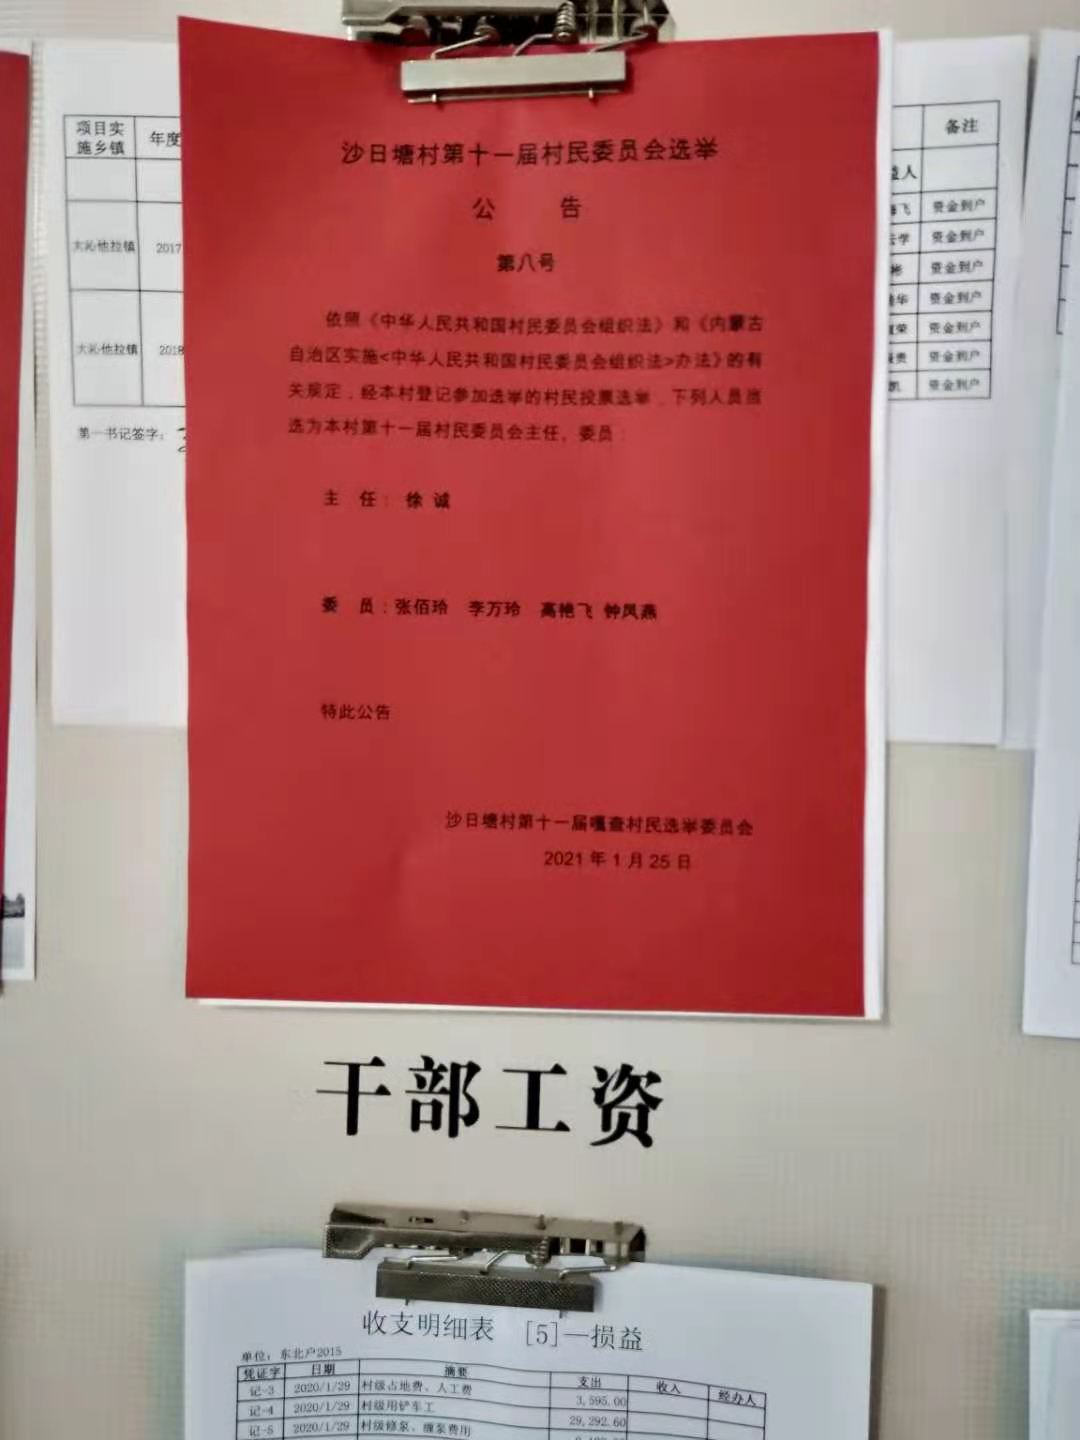 沙日塘村第十一届村民委员会选举
公 告
第八号
依照《中华人民共和国村民委员会组织法》和《内蒙古
自治区实施<中华人民共和国村民委员会组织法>办法》的有
关规定，经本村登记参加选举的村民投票选举，下列人员当
选为本村第十一届村民委员会主任、委员：
主 任： 徐 诚
委 员：张佰玲 李万玲 高艳飞 钟凤燕
特此公告
沙日塘村第十一届嘎查村民选举委员会
2021 年 1 月 25 日
项目实 年度
施乡镇
大沁他拉镇 2017
大沁他拉镇 2018
第一书记签字：
备注
益人
飞 资金到户
云学 资金到户
彬 资金到户
华 资金到户
荣 资金到户
贵 资金到户
凯 资金到户
干部工资
收支明细表 [5]—损益
单位：东北户2015
凭证字 日期 摘要 支出 收入 经办人
记-3 2020/1/29 村级占地费、人工费 3,595.00
记-4 2020/1/29 村级用铲车工 29,292.60
记-5 2020/1/29 村级修泵、缠泵费用